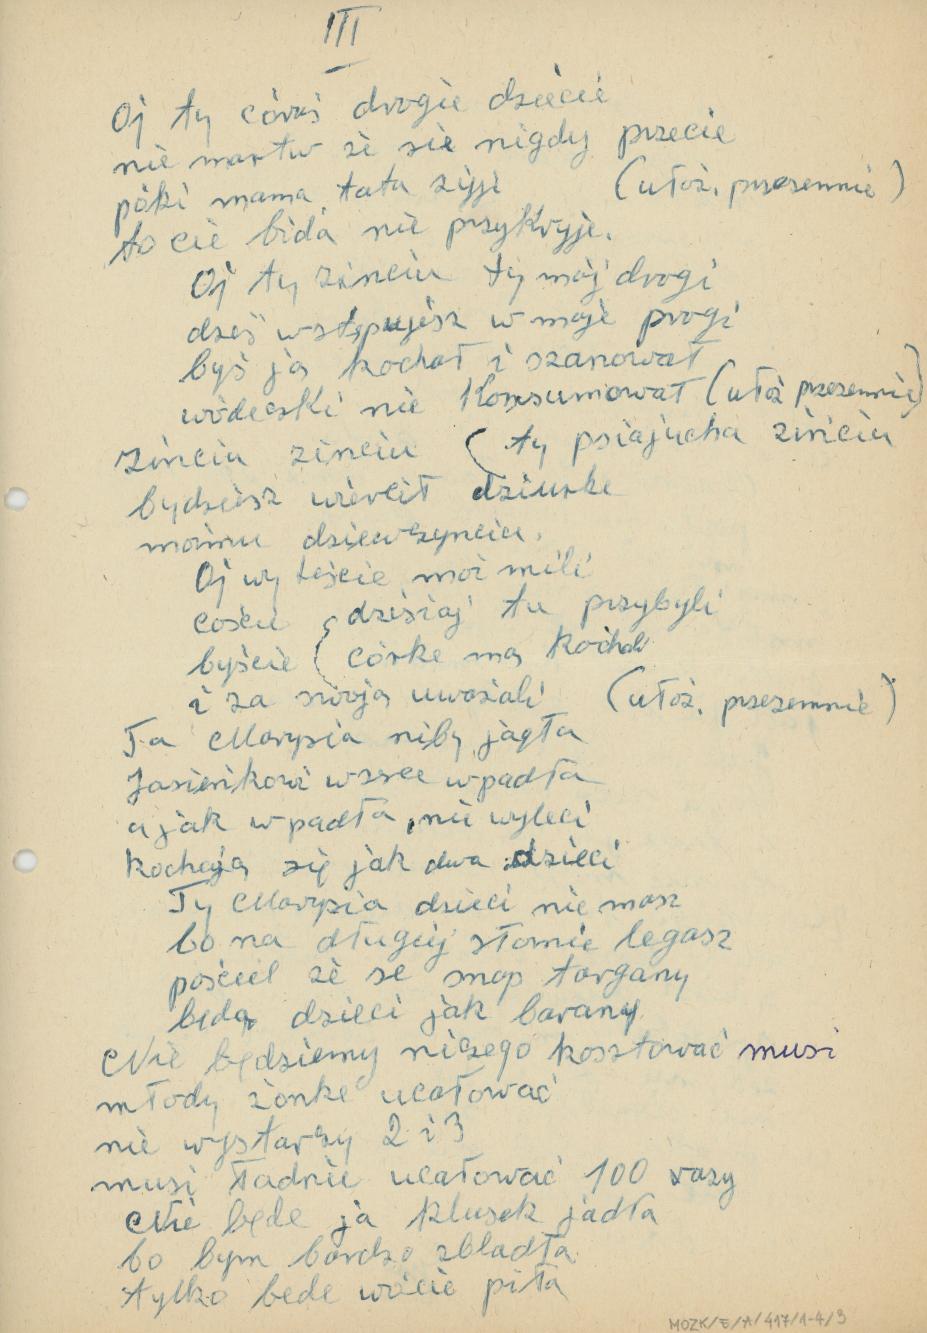 III
Oj ty córuś drogie dziecie
nie martw że sie nigdy przecie
póki mama, tata żyji (ułoż. przezemnie)
to cie bida nie przykryje.
Oj ty zinciu ty mój drogi
dziś wstępujesz w moje progi
byś ją kochał i szanował
wódecski nie konsumował (ułoż przezemnie)
Zinciu zinciu (ty psiajucha zinciu
bydziesz wiercił dziurke
mamu dziewczynciu.
Oj wy teście moi mili
coście dzisiaj tu przybyli
byście (córke mą kochali
i za swoją uważali (ułoż. przezemnie)
Ta Marysia niby jagła
Jasieńkowi w serce wpadła
a jak wpadła, nie wyleci
kochają się jak dwa dzieci
Ty Marysia dzieci nie masz
bo na długiej słomie legasz
pościel że se snop targany
będą dzieci jak barany
Nie będziemy niczego kosztować musi
młody żonke ucałować
nie wystarczy 2 i 3
musi ładnie ucałować 100 razy
Nie będe ja klusek jadła
bo bym bardzo zbladła
tylko bede wócie piła
MOZK/E/A/417/1-4/3